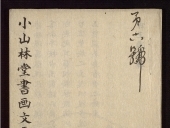 第六號
小山林堂書画文